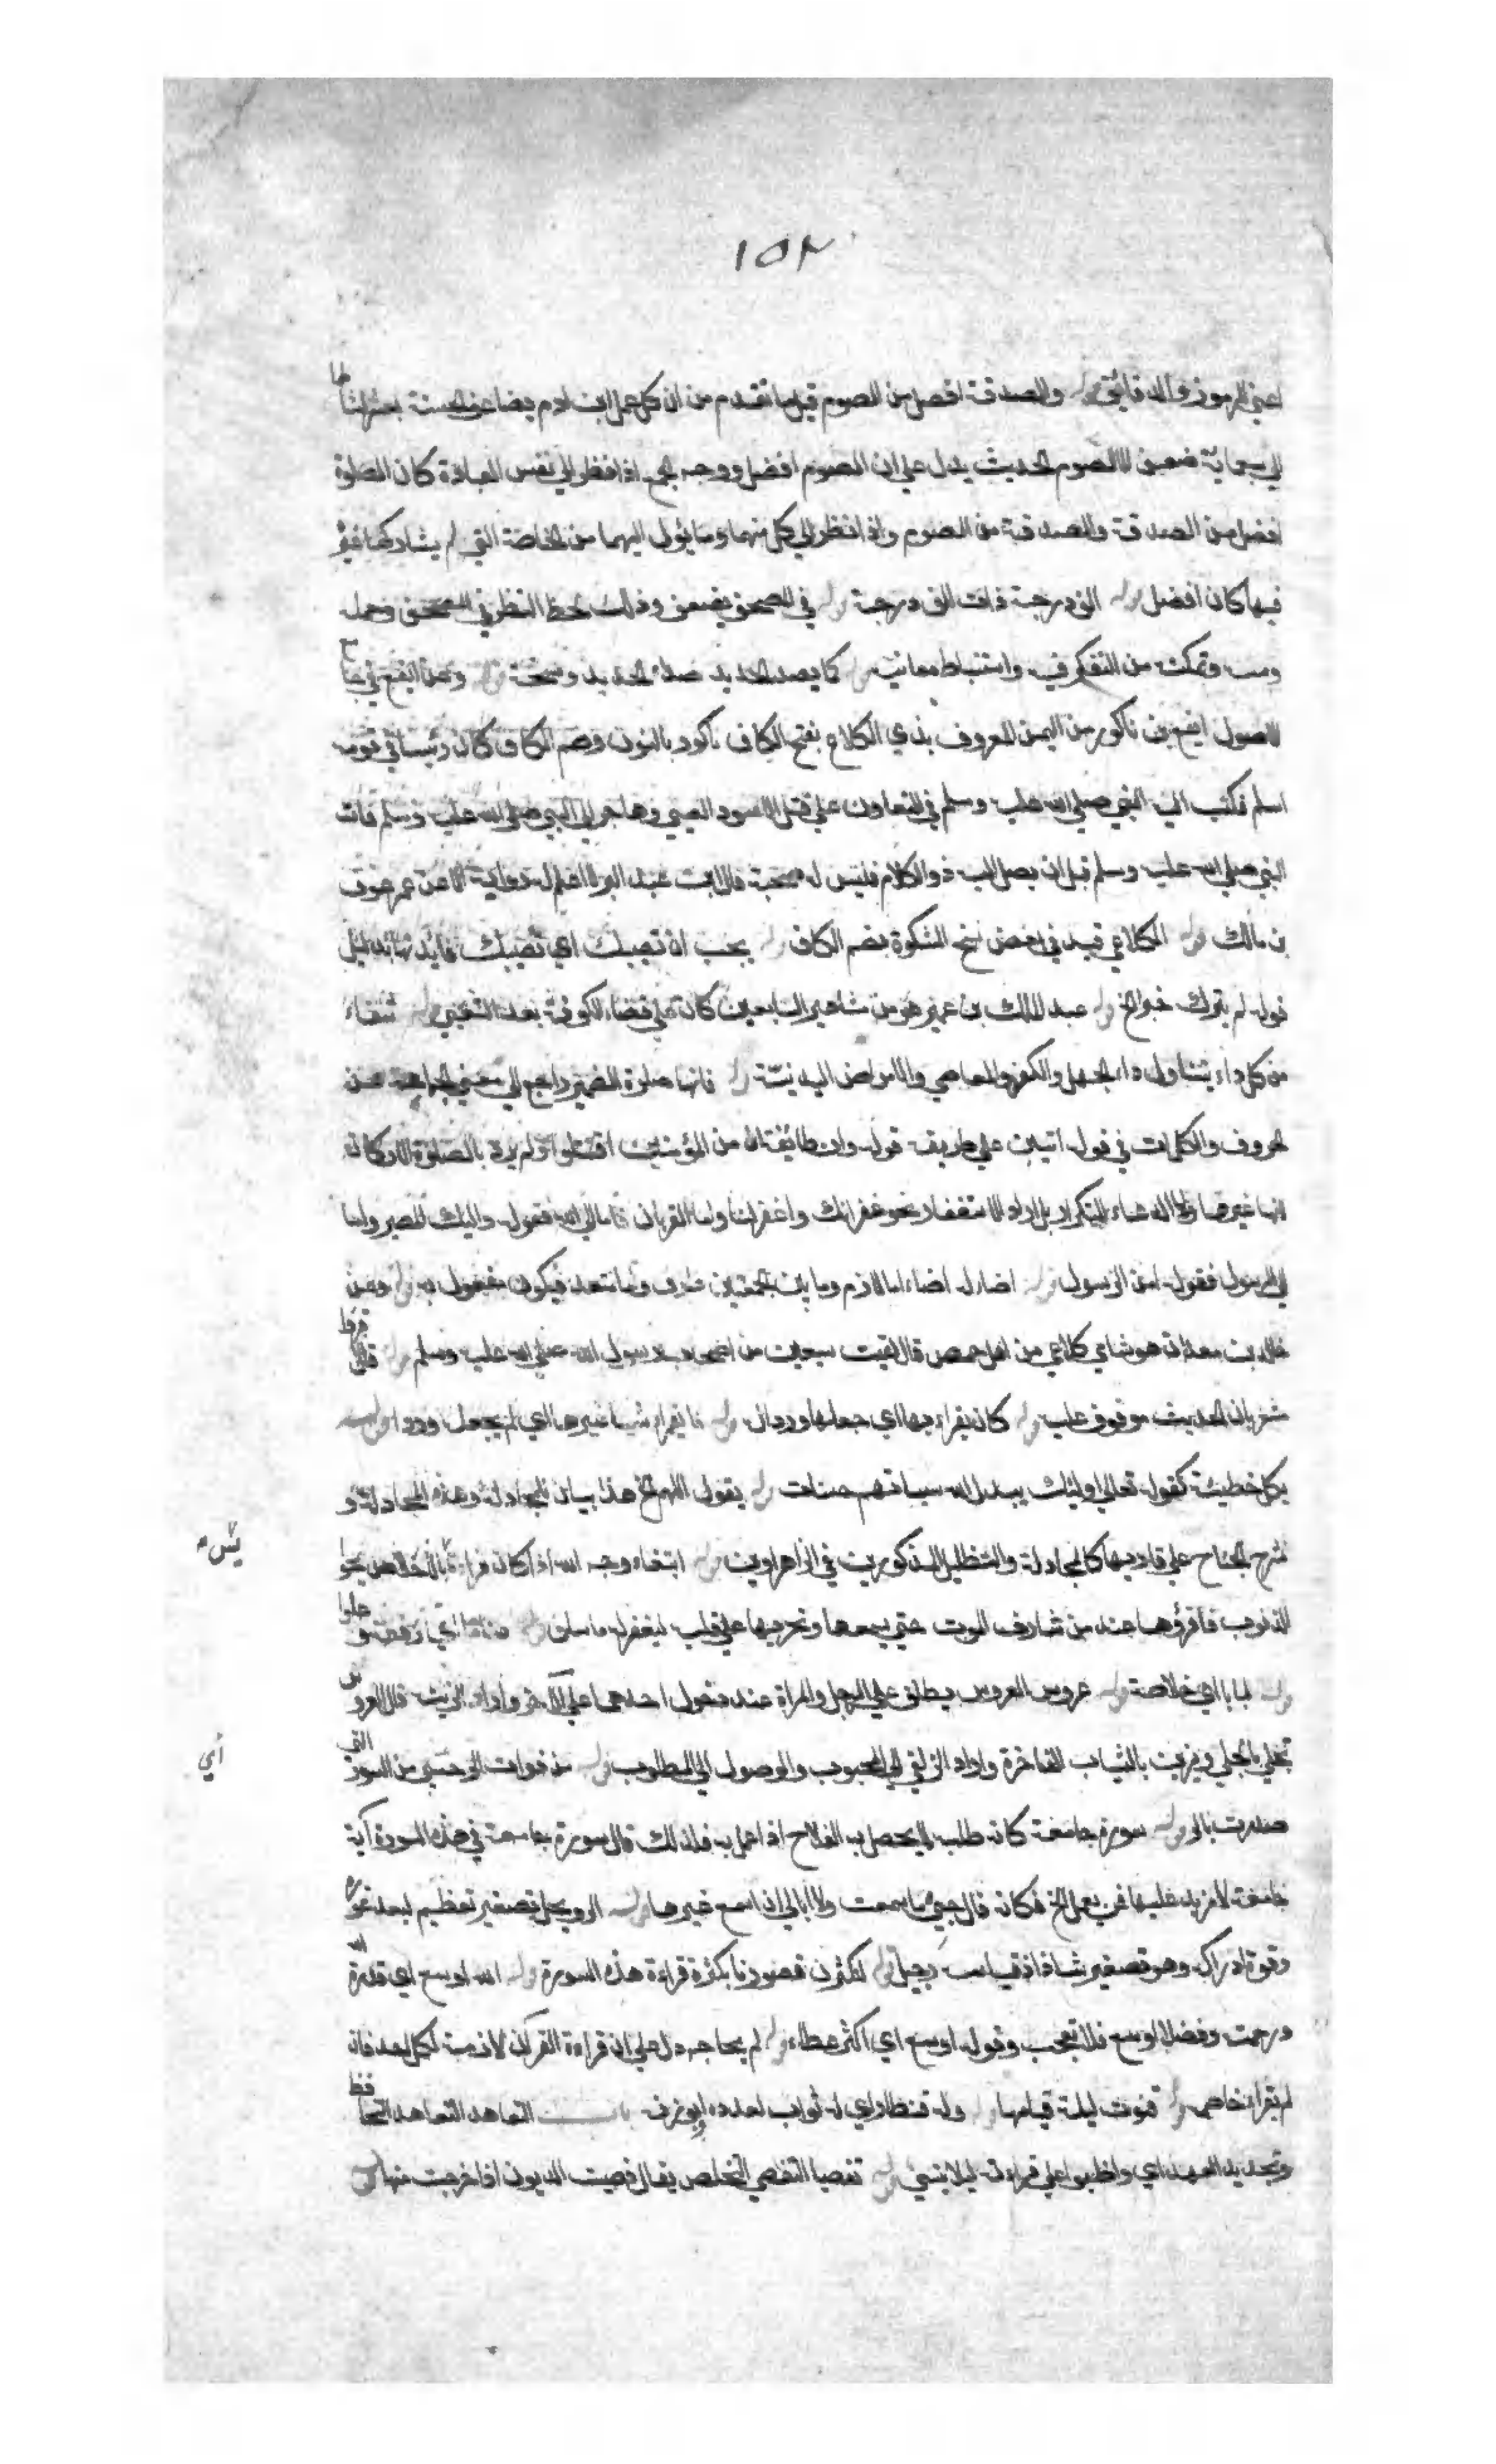 ١٥٢
اعني الرموز والدقائق قوله والصدقة افضل من الصوم قيل ما تقدم من ان كل عمل ابن ادم يضاعف الحسنة بعشر امثالها
الي سبعمائة ضعف الا الصوم الحديث يدل علي ان الصوم افضل ووجه الجمع اذا نظر الي نفس العبادة كان الصلوة
افضل من الصدقة والصدقة من الصوم واذا نظر الي كل منهما وما يؤل اليهما من الخاصة التي لم يشاركها غيره
فيها كان افضل قوله الف درجة ذات الف درجة قوله في المصحف يضعف وذلك لحظ النظر في المصحف وحمله
ومسه وتمكنه من التفكر فيه واستنباط معانيه قوله كما يصدأ الحديد صدأ الحديد وسخه قوله وعن ايفع في جامع
الاصول ايفع بن ناكور من اليمن المعروف بذي الكلاع بفتح الكاف ناكور بالنون وضم الكاف كان رئيسا في قومه
اسلم فكتب اليه النبي صلي الله عليه وسلم في التعاون علي قتل الاسود العنسي وهاجر الي النبي صلي الله عليه وسلم فمات
النبي صلي الله عليه وسلم قبل ان يصل اليه ذو الكلاع فليس له صحبة قال ابن عبد البر لا اعلم له رواية الا عن عمر وعوف
بن مالك قوله الكلاعي قيد في بعض نسخ المشكوة بضم الكاف قوله يحب ان تصيبك اي تصيبك فائدتها بدليل
قوله لم يترك خيرا الخ قوله عبد الملك بن عمير هو من مشاهير التابعين كان علي قضاء الكوفة بعد الشعبي قوله شفاء
من كل داء يتناول داء الجهل والكفر والمعاصي والامراض البدنية قوله فانها صلوة الضمير راجع الي معني الجماعة من
الحروف والكلمات في قوله اتيين علي طريقة قوله وان طائفتان من المؤمنين اقتتلوا ولم يرد بالصلوة الاركان
لانها غيرها ولا الدعاء للتكرار بل اراد الاستغفار نحو غفرانك واغفر لنا واما القربان فاما الي الله فقوله واليك المصير واما
الي الرسول فقوله امن الرسول قوله اضاء له اضاء اما لازم وما بين الجمعتين ظرف واما متعد فيكون مفعول به قوله وعن
خالد بن معدان هو شامي كلاعي من اهل حمص قال لقيت سبعين من اصحاب رسول الله صلي الله عليه وسلم قوله قال
مشعر بان الحديث موقوف عليه قوله كان يقراء بها اي جعلها وردا له قوله ما يقراء شيئا غيرها اي لم يجعل وردا قوله
بكل خطيئة كقوله تعالي اوليك يبدل الله سيئاتهم حسنات قوله يقول اللهم الخ هذا بيان للمجادلة وهذه المجادلة و
نشر الجناح علي قاريها كالمجادلة والتظليل المذكورين في الزهراوين قوله ابتغاء وجه الله اذا كان قراءة بالاخلاص يمحو
الذنوب فاقرؤها عند من شارف الموت حتي يسمعها وتجريها علي قلبه ليغفر له ما سلف قوله سناما اي رفعة وعلوا
قوله لبابا اي خلاصة قوله عروس العروس يطلق علي الرجل والمراة عند دخول احدهما علي الاخر واراد الزينة فان العروس
تحلي بالحلي وتزين بالثياب الفاخرة واراد الزلفي الي المحبوب والوصول الي المطلوب قوله من ذوات الر حسبي من السور التي
صدرت بالر قوله سورة جامعة كانه طلبه لما يحصل به الفلاح اذا عمل به فلذلك قال سورة جامعة في هذه السورة آية
جامعة لا مزيد عليها فمن يعمل الخ فكانه قال حسبي ما سمعت ولا ابالي ان اسمع غيرها قوله الرويجل تصغير تعظيم لبعد غوره
وقوة ادراكه وهو تصغير شاذ اذ قياسه رجيل قوله لنكثرن قصورنا بكثرة قراءة هذه السورة قوله الله اوسع اي قدرة الله
ورحمته وفضله اوسع فلا تعجب وقوله اوسع اي اكثر عطاء قوله لم يحاجه دل علي ان قراءة القران لازمة لكل احد فان
لم يقراء خاصمه قوله قنوت ليلة قيامها قوله وله قنطار اي له ثواب بعدده او بوزنه باب التعاهد التعاهد التحفظ
وتجديد العهد اي واظبوا علي قراءته ليلا ينسي قوله تفصيا التفصي التخلص يقال تفصيت الديون اذا خرجت منها
اي